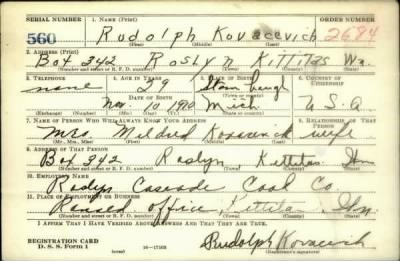 SERIAL NUMBER 1. NAME (Print) ORDER NUMBER
560 Rudolph Kovacevich 2684
(First) (Middle) (Last)
2. ADDRESS (Print)
Box 342 Roslyn Kittitas Wn.
(Number and street or R. F. D. number) (Town) (County) (State)
3. TELEPHONE 4. AGE IN YEARS 5. PLACE OF BIRTH 6. COUNTRY OF CITIZENSHIP
none 29 Stambaugh
DATE OF BIRTH (Town or county)
Nov. 10 1910 Mich. U.S.A.
(Exchange) (Number) (Mo.) (Day) (Yr.) (State or country)
7. NAME OF PERSON WHO WILL ALWAYS KNOW YOUR ADDRESS 8. RELATIONSHIP OF THAT PERSON
Mrs. Mildred wife
(Mr., Mrs., Miss) (First) (Middle) (Last)
9. ADDRESS OF THAT PERSON
Box 342 Roslyn Kittitas Wn
(Number and street or R. F. D. number) (Town) (County) (State)
10. EMPLOYER'S NAME
Roslyn Cascade Coal Co.
11. PLACE OF EMPLOYMENT OR BUSINESS
office, Kittitas, Wn.
(Number and street or R. F. D. number) (Town) (County) (State)
I AFFIRM THAT I HAVE VERIFIED ABOVE ANSWERS AND THAT THEY ARE TRUE.
REGISTRATION CARD
D. S. S. Form 1 (over) 16—17105 Rudolph Kovacevich
(Registrant's signature)